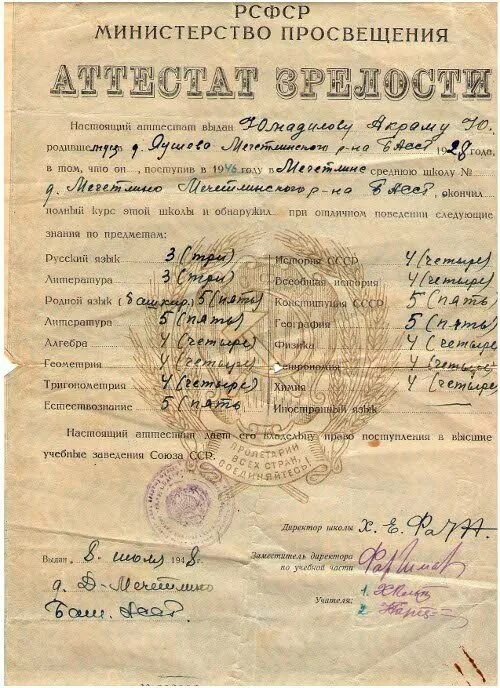 РСФСР
МИНИСТЕРСТВО ПРОСВЕЩЕНИЯ
АТТЕСТАТ ЗРЕЛОСТИ
Настоящий аттестат выдан Юмадилову Акраму Ю.
родившемуся д. Яушево Мечетлинского р-на БАССР 1928 года
в том, что он, поступив в 1946 году в Мечетлинс среднюю школу №
д. Мечетлино Мечетлинского р-на БАССР, окончил
полный курс этой школы и обнаружил при отличном поведении следующие
знания по предметам:
Русский язык 3 (три)
Литература 3 (три)
Родной язык (башкир) 5 (пять)
Литература 5 (пять)
Алгебра 4 (четыре)
Геометрия 4 (четыре)
Тригонометрия 4 (четыре)
Естествознание 5 (пять
История СССР 4 (четыре)
Всеобщая история 4 (четыре)
Конституция СССР 5 (пять
География 5 (пять)
Физика 4 (четыре
Астрономия 4 (четыре)
Химия 4 (четыре
Иностранный язык
Настоящий аттестат дает его владельцу право поступления в высшие
учебные заведения Союза ССР.
ПРОЛЕТАРИИ
ВСЕХ СТРАН,
СОЕДИНЯЙТЕСЬ!
Директор школы Х. Е.
Выдан 8 июля 1948 г.
Заместитель директора
по учебной части
д. Д-Мечетлино
Баш. АССР.
Учителя: 1.
2.